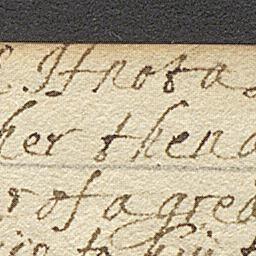 It not a
her then a
r of a grea
to